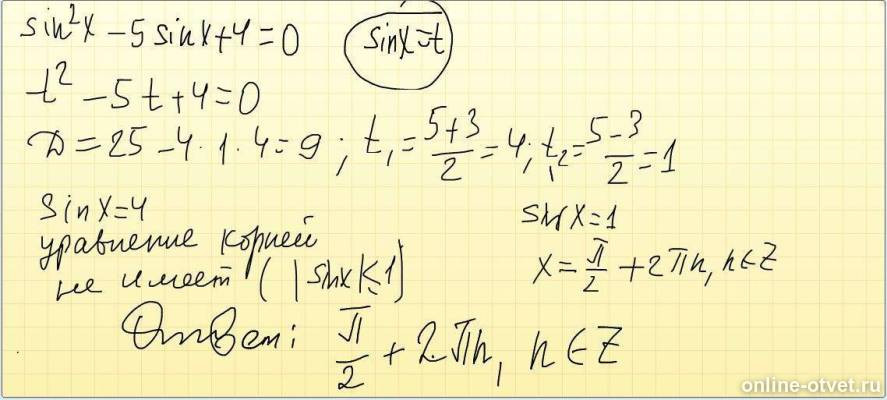 sin²x - 5 sinx + 4 = 0    sinx = t
t² - 5t + 4 = 0
D = 25 - 4 · 1 · 4 = 9 ; t₁ = (5+3)/2 = 4 ; t₂ = (5-3)/2 = 1
sinx = 4
уравнение корней
не имеет ( |sinx| ≤ 1)
sin x = 1
x = π/2 + 2πn, n ∈ Z
Ответ: π/2 + 2πn, n ∈ Z
online-otvet.ru